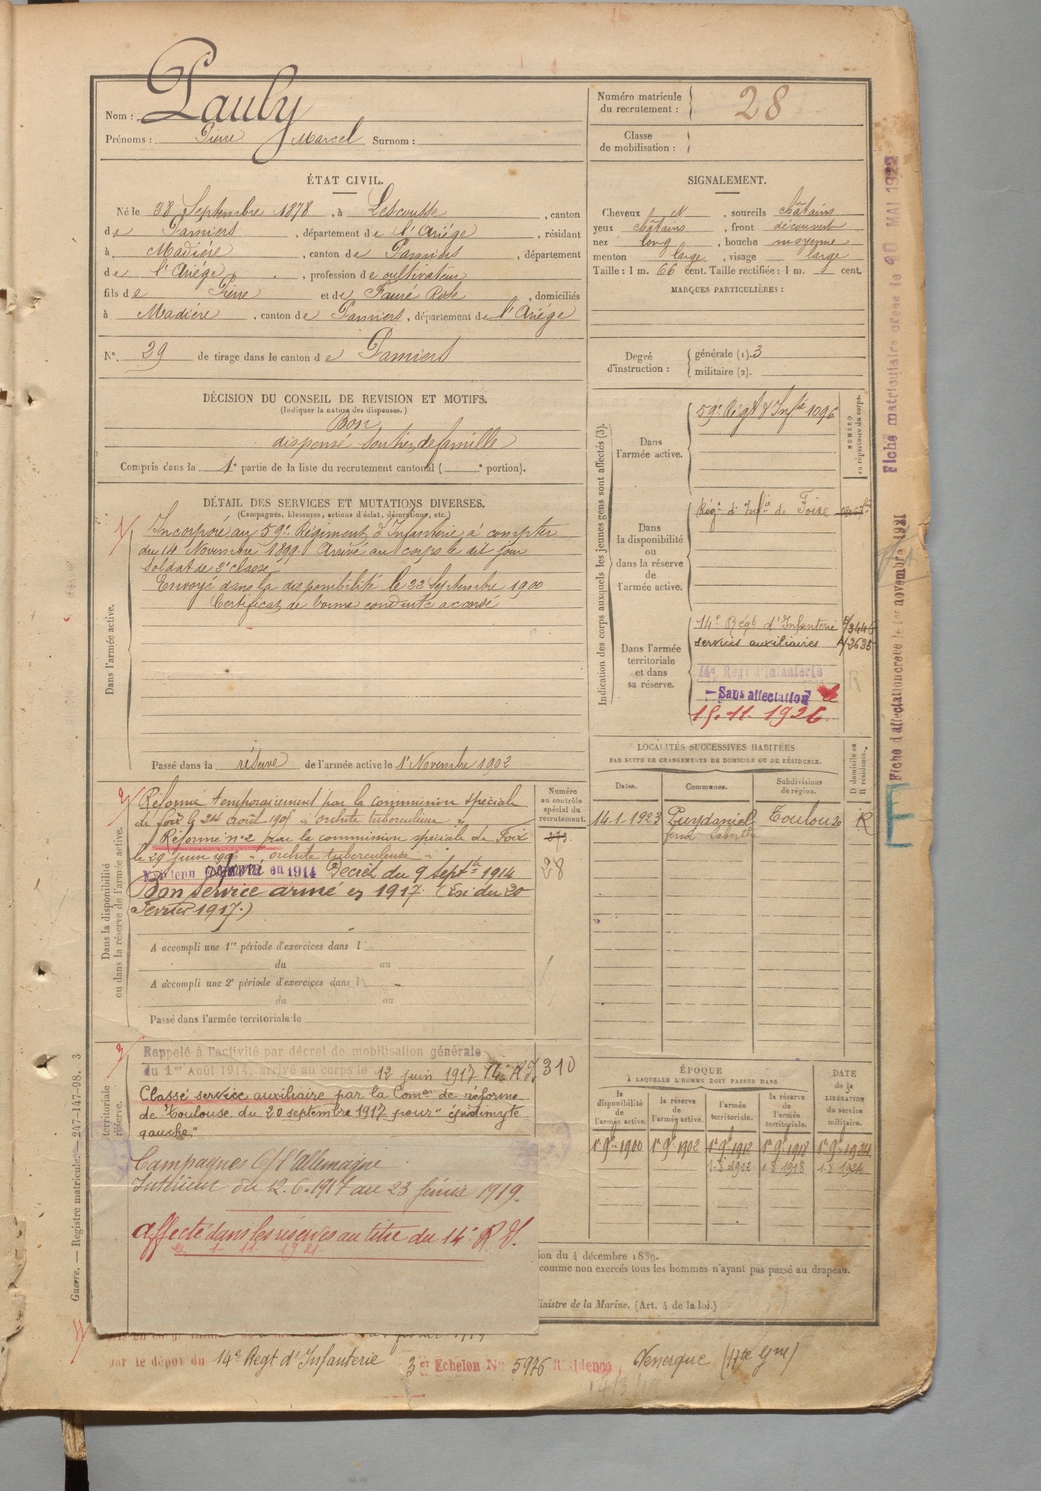 Nom : Pauly
Prénoms : Pierre Marcel Surnom :
Numéro matricule du recrutement : 28
Classe de mobilisation :
ÉTAT CIVIL.
Né le 28 Septembre 1878, à Lescousse, canton
de Pamiers, département de l'Ariège, résidant
à Madière, canton de Pamiers, département
de l'Ariège, profession de cultivateur
fils de Pierre et de Fauré Rose, domiciliés
à Madière, canton de Pamiers, département de l'Ariège
N° 29 de tirage dans le canton de Pamiers
SIGNALEMENT.
Cheveux et sourcils châtains
yeux châtains, front découvert
nez long, bouche moyenne
menton large, visage large
Taille : 1 m. 66 cent. Taille rectifiée : 1 m. cent.
MARQUES PARTICULIÈRES :
Degré d'instruction : générale (1). 3
militaire (2).
DÉCISION DU CONSEIL DE REVISION ET MOTIFS.
(Indiquer la nature des dispenses.)
Bon
dispensé soutien de famille
Compris dans la 1e partie de la liste du recrutement cantonal ( e portion).
DÉTAIL DES SERVICES ET MUTATIONS DIVERSES.
(Campagnes, blessures, actions d'éclat, décorations, etc.)
Dans l'armée active.
Incorporé au 59e Régiment d'Infanterie à compter
du 14 Novembre 1899. Arrivé au corps le dit jour
soldat de 2e classe
Envoyé dans la disponibilité le 22 Septembre 1900
Certificat de bonne conduite accordé
Passé dans la réserve de l'armée active le 1er Novembre 1902
Indication des corps auxquels les jeunes gens sont affectés (3).
NUMÉRO au répertoire du corps.
Dans l'armée active.
59e Régt d'Infie 1096
Dans la disponibilité ou dans la réserve de l'armée active.
Régt d'Infie de Foix
Dans l'armée territoriale et dans sa réserve.
14e Régt d'Infanterie
services auxiliaires
14e Régt d'Infanterie
Sans affectation le
15.11.1926
LOCALITÉS SUCCESSIVES HABITÉES
PAR SUITE DE CHANGEMENTS DE DOMICILE OU DE RÉSIDENCE.
Dates. Communes. Subdivisions de région. D domicile ou R résidence.
14.1.1923 Puydaniel Toulouse R
Dans la disponibilité ou dans la réserve de l'armée active.
Numéro au contrôle spécial du recrutement.
28
Réformé temporairement par la commission spéciale
de Foix le 24 août 1905 "orchite tuberculeuse"
Réformé n° 2 par la commission spéciale de Foix
le 29 juin 1906 "orchite tuberculeuse"
Maintenu réformé en 1914 Décret du 9 septbre 1914
Bon service armé en 1917 (Loi du 20
Février 1917.)
A accompli une 1re période d'exercices dans l
du au
A accompli une 2e période d'exercices dans l
du au
Passé dans l'armée territoriale le
territoriale réserve.
Rappelé à l'activité par décret de mobilisation générale
du 1er Août 1914, arrivé au corps le 12 juin 1917 310
Classé service auxiliaire par la Comon de réforme
de Toulouse du 20 septembre 1917 pour "épididymite
gauche."
Campagnes C/ l'Allemagne
Intérieur du 12.6.1917 au 23 février 1919.
Affecté dans les réserves au titre du 14e R.I.
ÉPOQUE
À LAQUELLE L'HOMME DOIT PASSER DANS
la disponibilité de l'armée active. la réserve de l'armée active. l'armée territoriale. la réserve de l'armée territoriale. DATE de la LIBÉRATION du service militaire.
1er 9bre 1900 1er 9bre 1902 1er 9bre 1912 1er 9bre 1918 1er 9bre 1924
1.8.1912 1.8.1918 1.8.1924
ion du 4 décembre 1889.
comme non exercés tous les hommes n'ayant pas passé au drapeau.
inistre de la Marine. (Art. 4 de la loi.)
par le dépôt du 14e Régt d'Infanterie 3e Echelon No 5926 Résidence Venerque (Hte Gne)
Guerre. — Registre matricule. — 247-147-98. 3
Fiche matriculaire créée le 20 MAI 1922
Fiche d'affectation créée le 1er novembre 1921